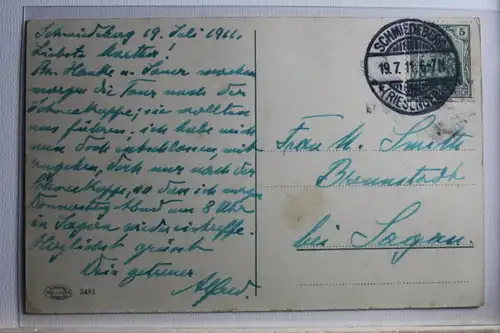 Schmiedeberg 19. Juli 1911.
Liebste Mutter!
Hanke u. machen
morgen die Tour nach der
Schneekoppe; sie wollten
uns führen; ich habe mich
nun doch entschlossen, mit-
zugehen, doch nur nach der
Schneekoppe, so dass ich morgen
Donnerstag Abend um 8 Uhr
in Sagan wiedereintreffe.
Herzlichst grüsst
Dein getreuer
Alfred.
5493
SCHMIEDEBERG
19.7.11. 6-7N
(RIESENGEB.)
5
Frau M. Smith
Brennstadt
bei Sagan.